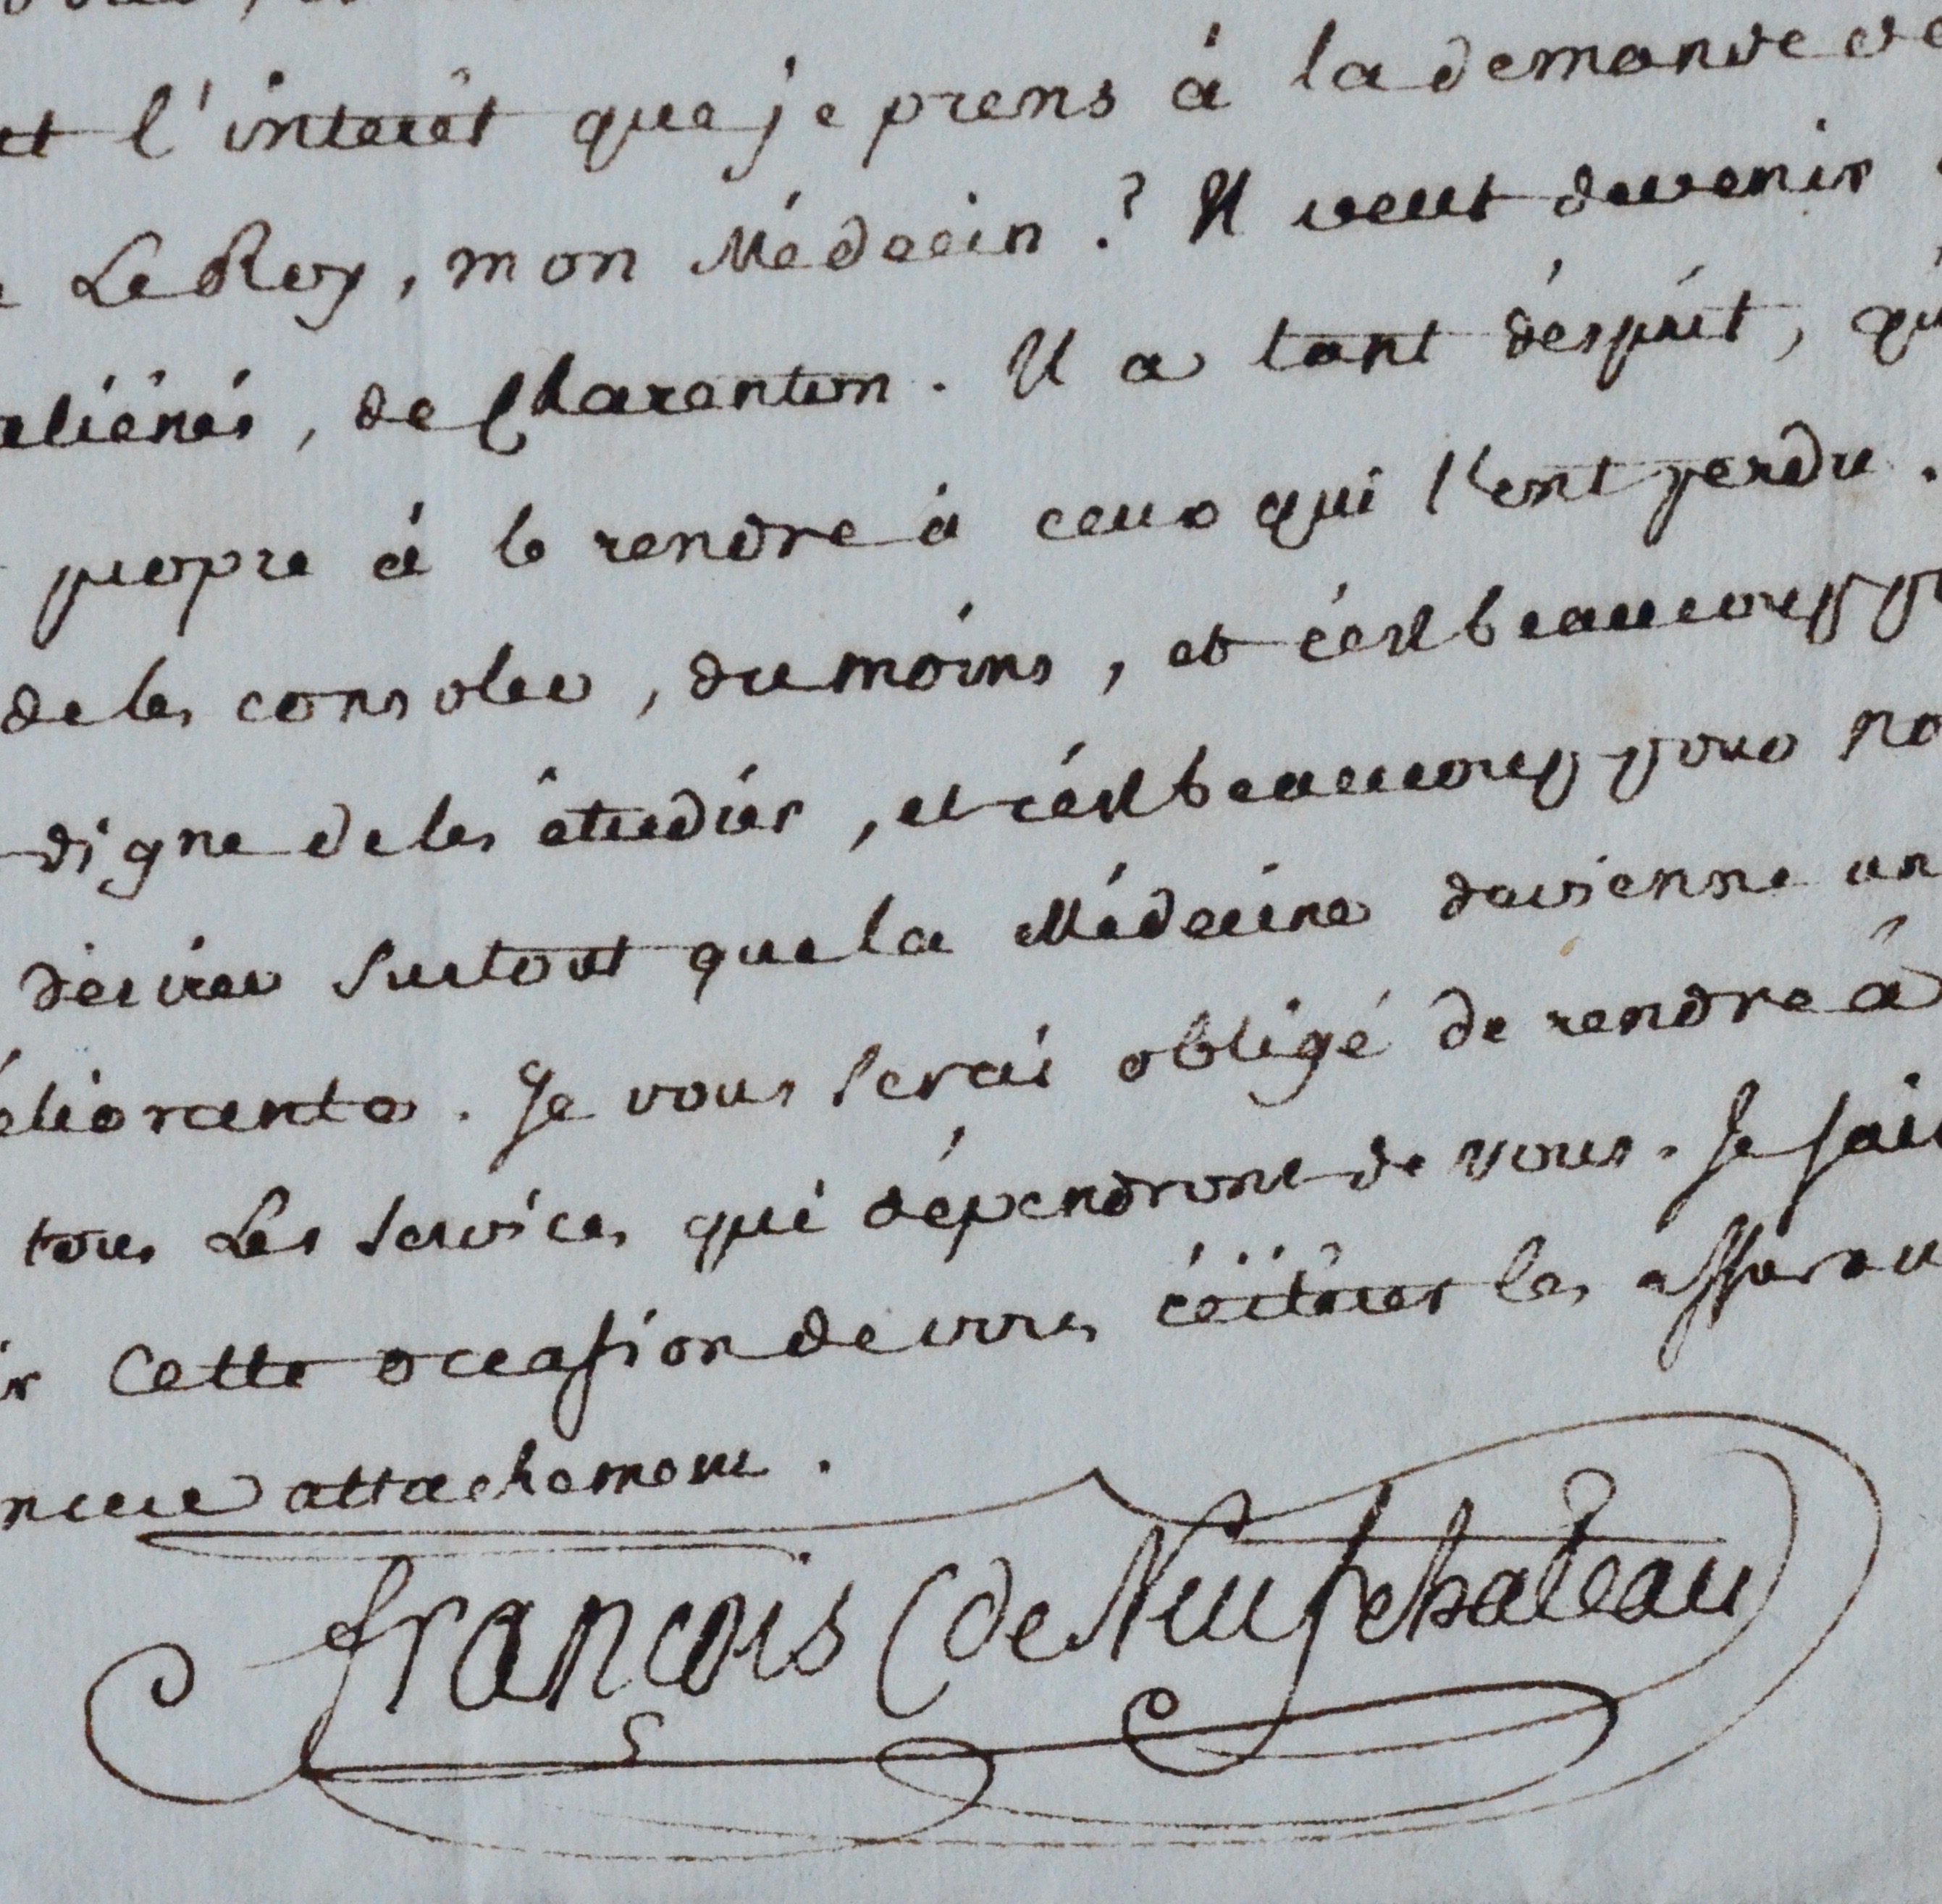 et l'interêt que je prens à la demande de
Le Roy, mon Médecin ? Il veut devenir
aliénés, de Charenton. Il a tant d'ésprit, qu
propre à le rendre à ceux qui l'ont perdu.
de les consoler, du moins, et c'est beaucoup
digne de les étudier, et c'est beaucoup pour no
désirer surtout que la Médecine devienne un
éliorante. Je vous serai obligé de rendre à
tous Les services qui dépendront de vous. Je sai
ir Cette occasion de vous réitérer les assuran
attachement.
françois (de Neufchateau